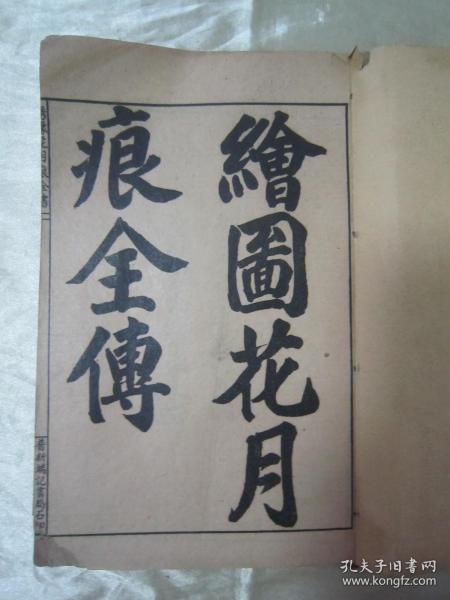 繪圖花月
痕全傳
孔夫子旧书网
www.kongfz.com